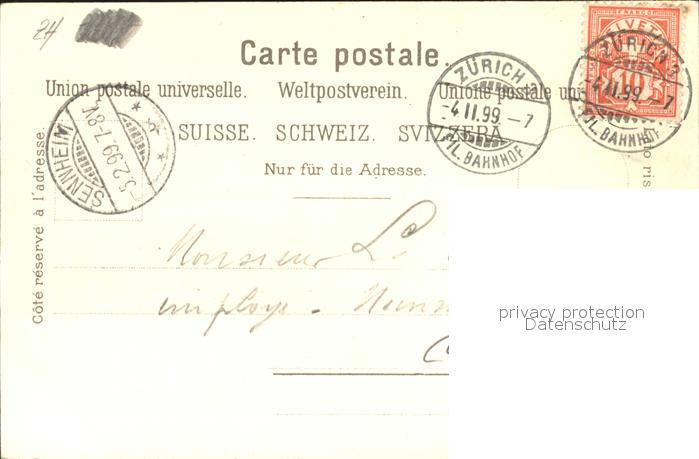 ZH
Carte postale.
Union postale universelle. Weltpostverein. Unione postale uni
SUISSE. SCHWEIZ. SVIZZERA
Nur für die Adresse.
Côté réservé à l'adresse.
SENNHEIM
5.2.99.7-8V.
ZÜRICH
-4 II.99.–7
FIL. BAHNHOF
FRANCO
HELVETIA
10
ZÜRICH
-4 II.99. 7
FIL. BAHNHOF
lo ris
Monsieur L
employé
privacy protection
Datenschutz